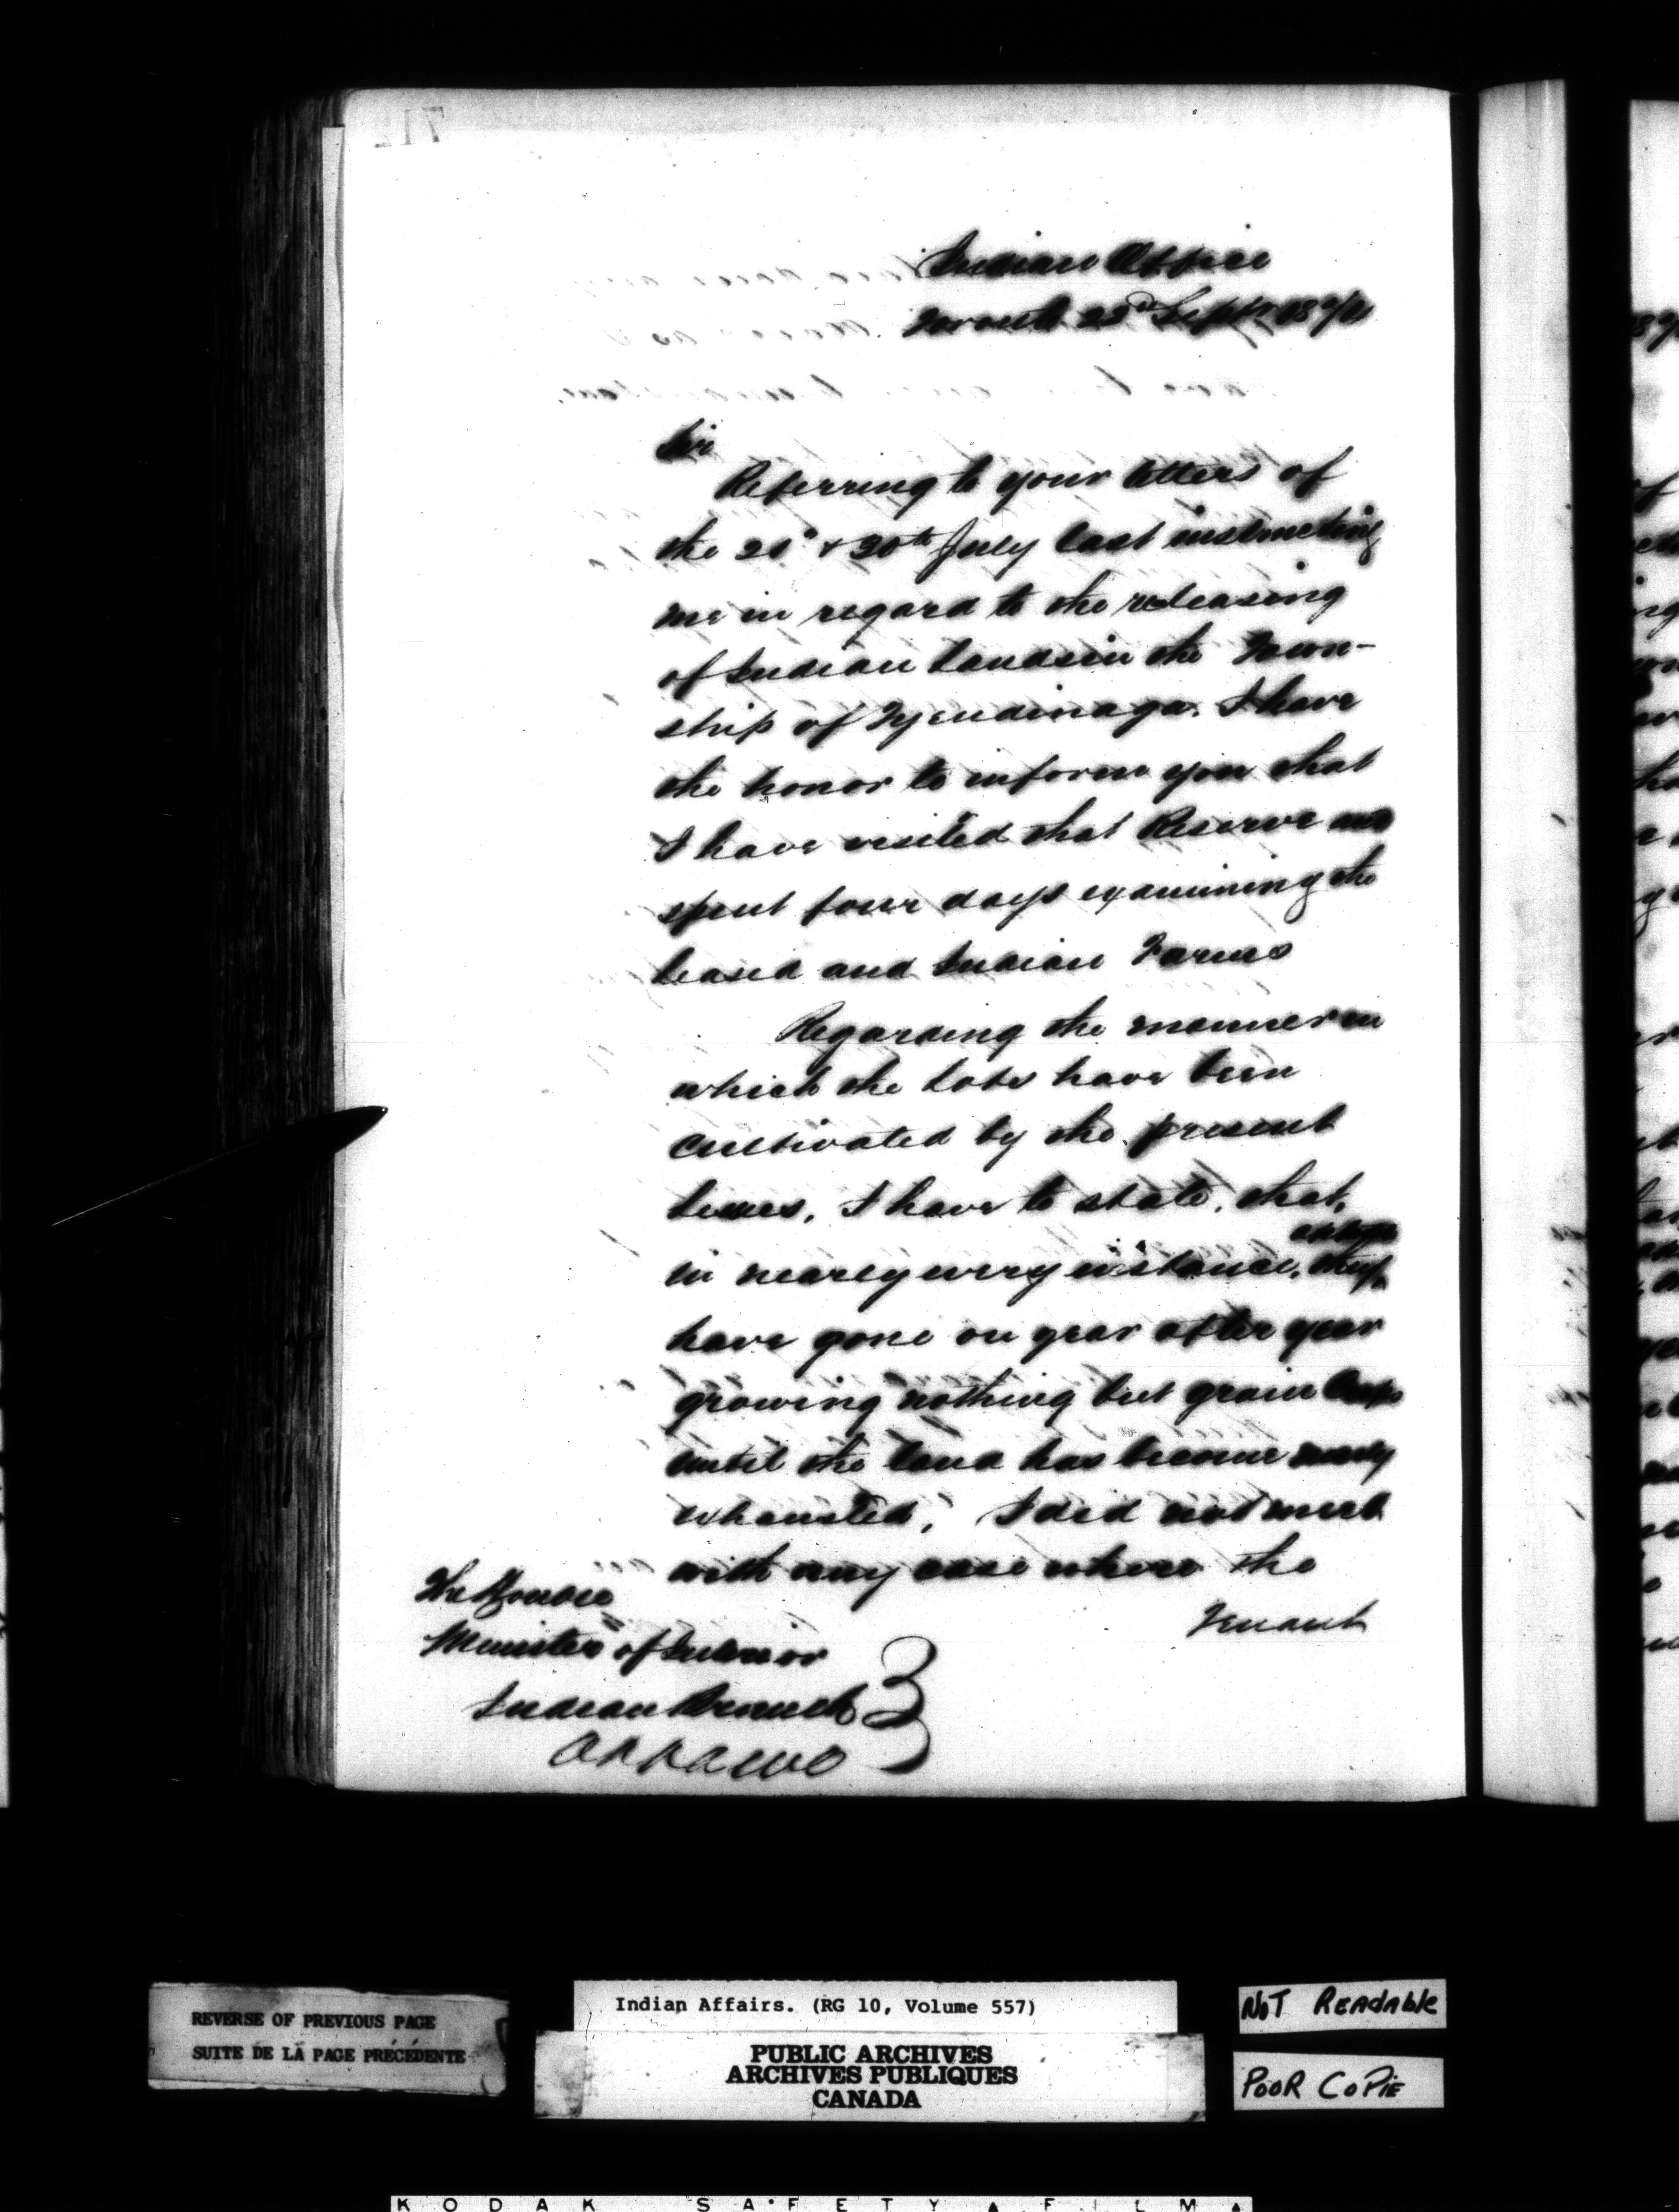 Indian Office
Toronto 22d Sept 187
Sir
Referring to your letters of
the 20th & 30th July last instructing
me in regard to the releasing
of Indian Lands in the Town-
ship of Tyendinaga. I have
the honor to inform you that
I have visited that Reserve and
spent four days examining the
leased and Indian Farms
Regarding the manner in
which the Lots have been
cultivated by the present
lessees, I have to state, that,
in nearly every instance, they
have gone on year after year
growing nothing but grain Crops
until the land has become nearly
exhausted, I did not meet
with any case where the
Tenant
The Honble
Minister of Interior
Indian Branch
Ottawa
REVERSE OF PREVIOUS PAGE
SUITE DE LA PAGE PRÉCÉDENTE
Indian Affairs. (RG 10, Volume 557)
PUBLIC ARCHIVES
ARCHIVES PUBLIQUES
CANADA
NOT READABLE
POOR COPIE
KODAK SAFETY FILM